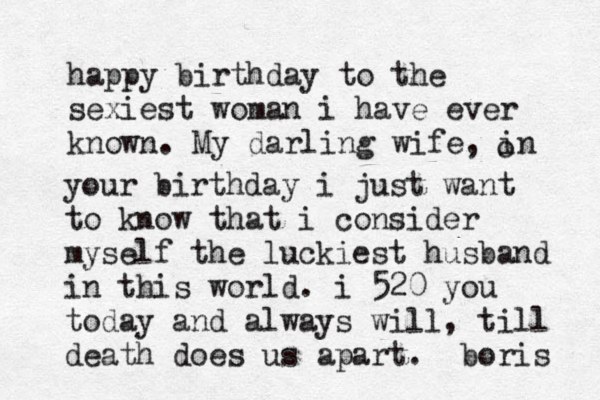 happy birthday to the
sexiest woman i have ever
known. My darling wife, on
your birthday i just want
to know that i consider
myself the luckiest husband
in this world. i 520 you
today and always will, till
death does us apart. boris